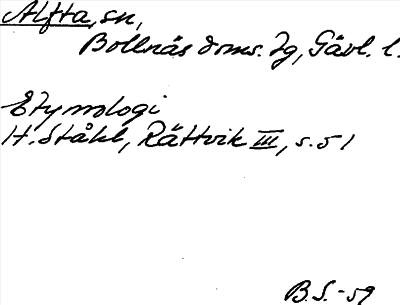 Alfta, sn,
Bollnäs doms. tg, Gävl. l.
Etymologi
H. Ståhl, Rättvik III, s. 51
B.S. -59